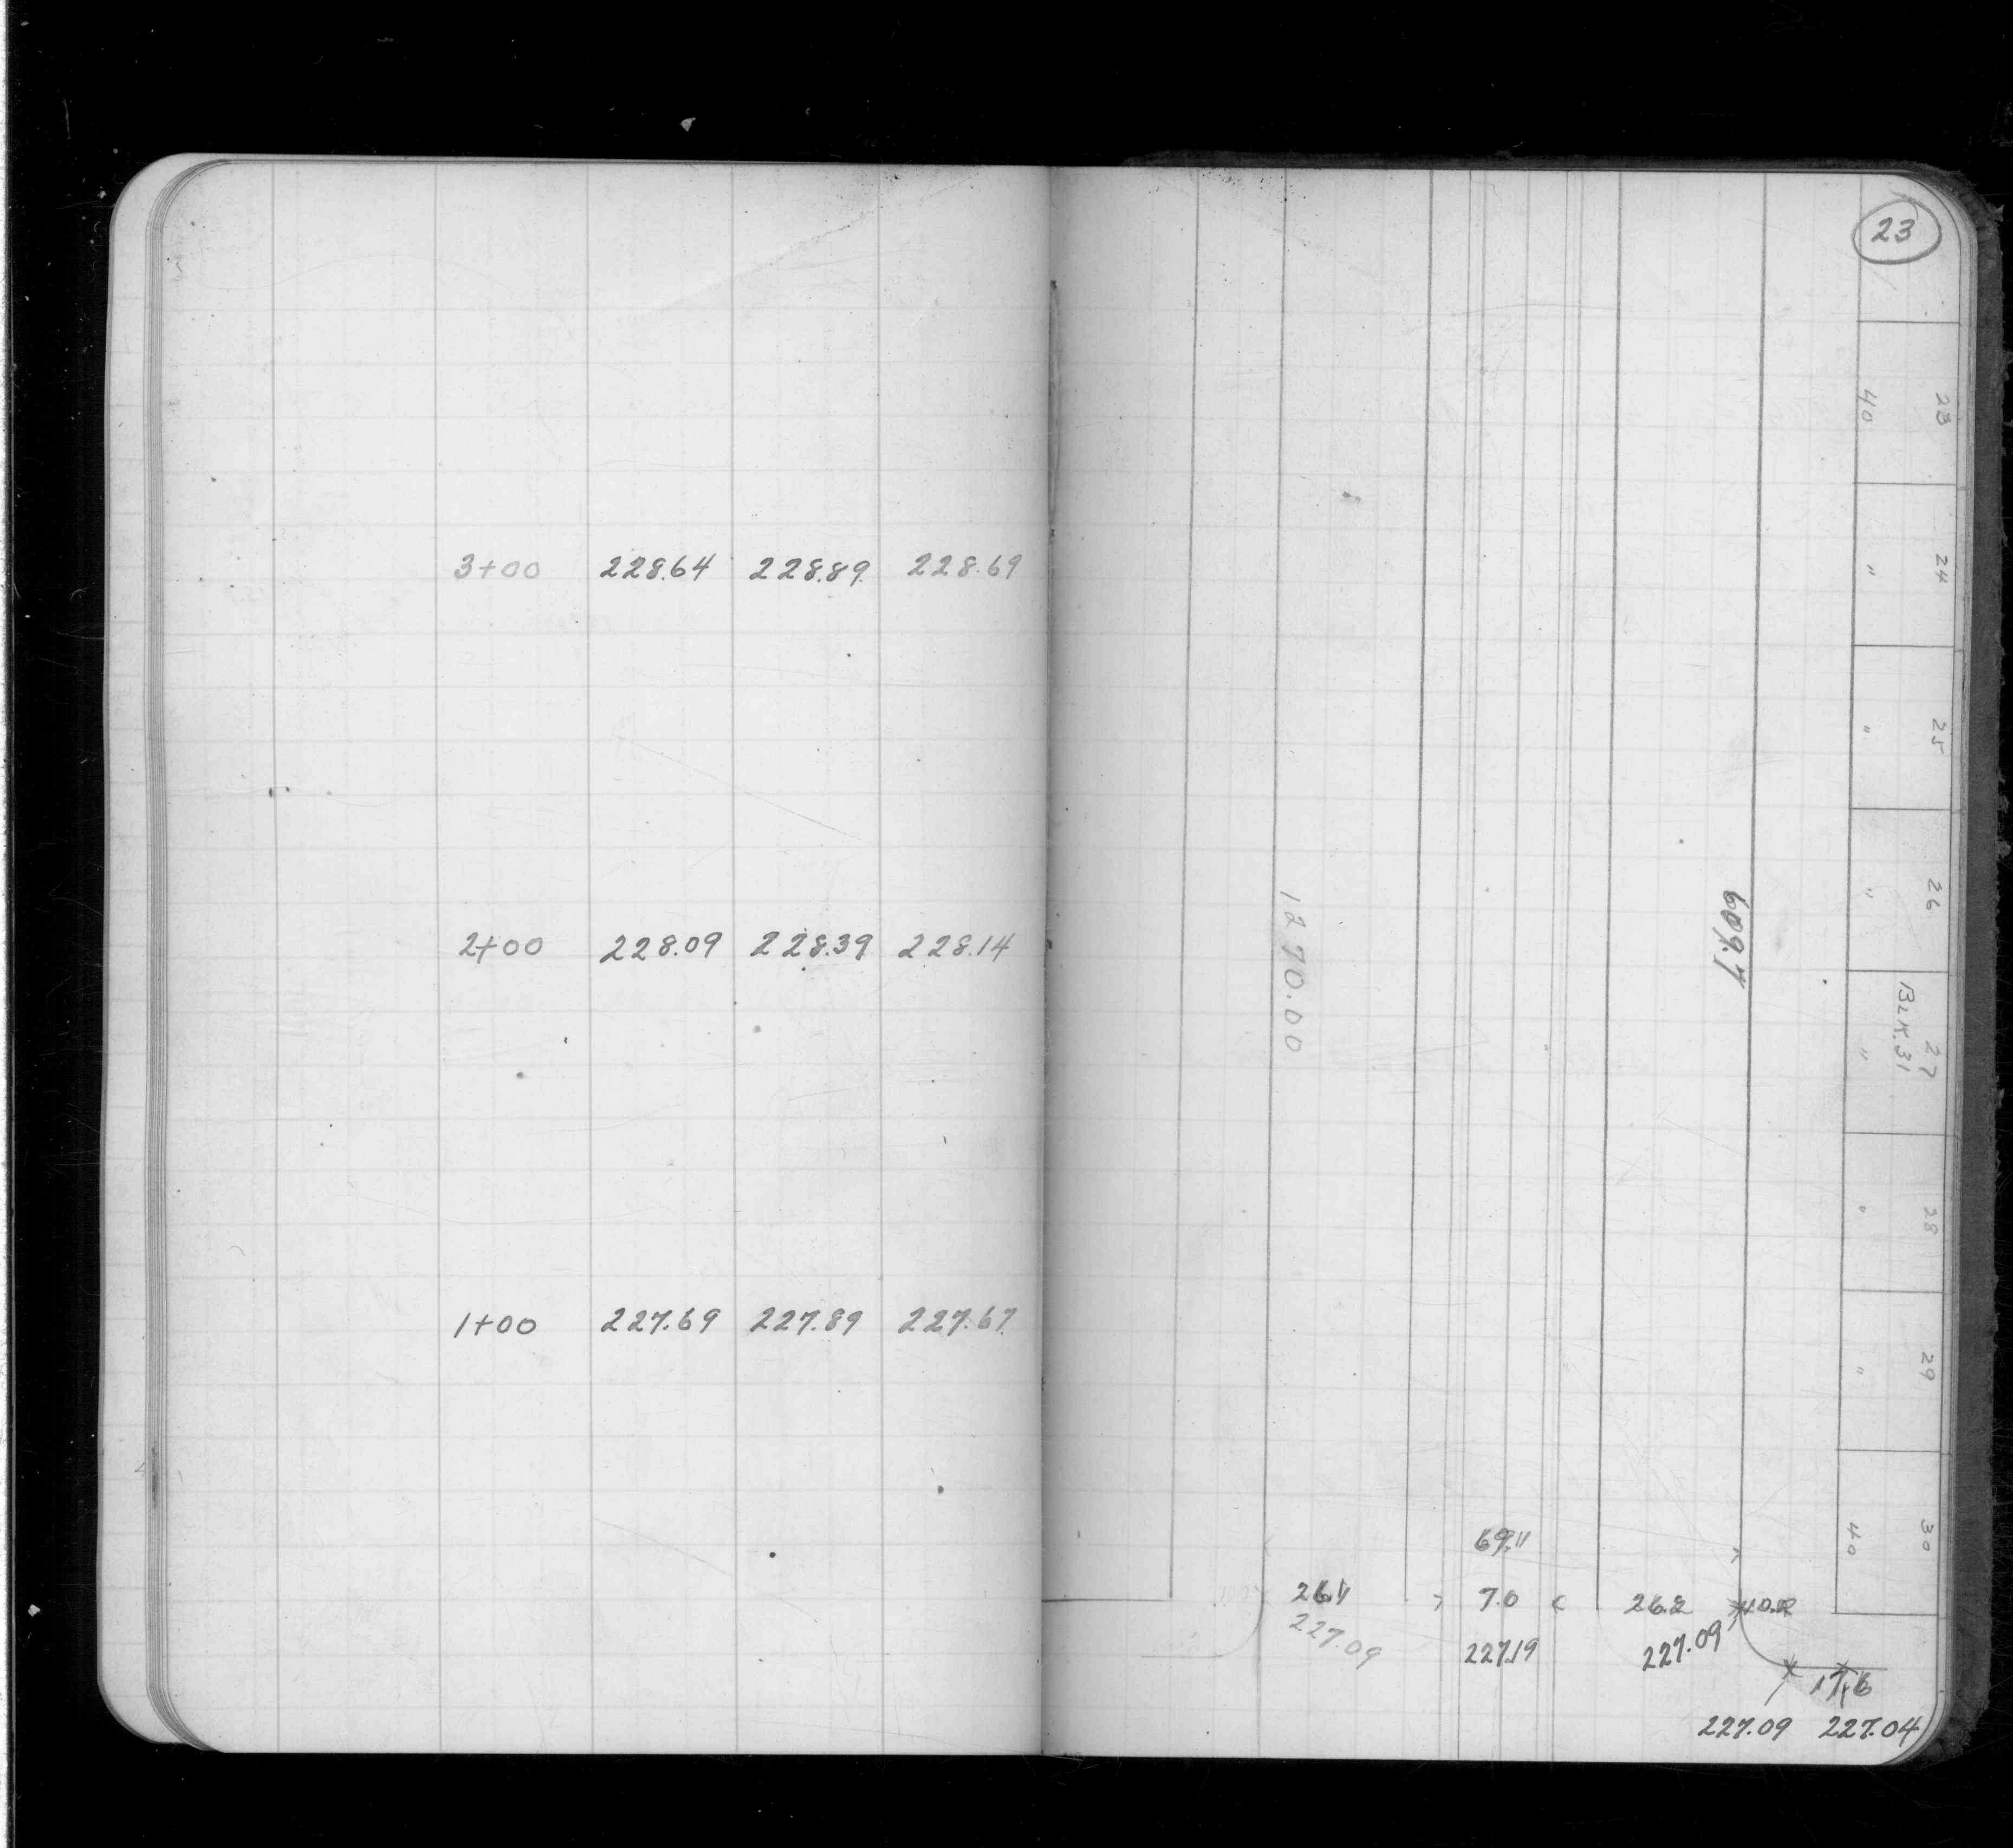 3+00 228.64 228.89 228.69
2+00 228.09 228.39 228.14
1+00 227.69 227.89 227.67
23
23
40
24
"
25
"
26
"
27
BLK. 31
"
28
"
29
"
30
40
1270.00
609.7
69.11
26.11 7.0 26.2
227.09 227.19 227.09
17.6
227.09 227.04